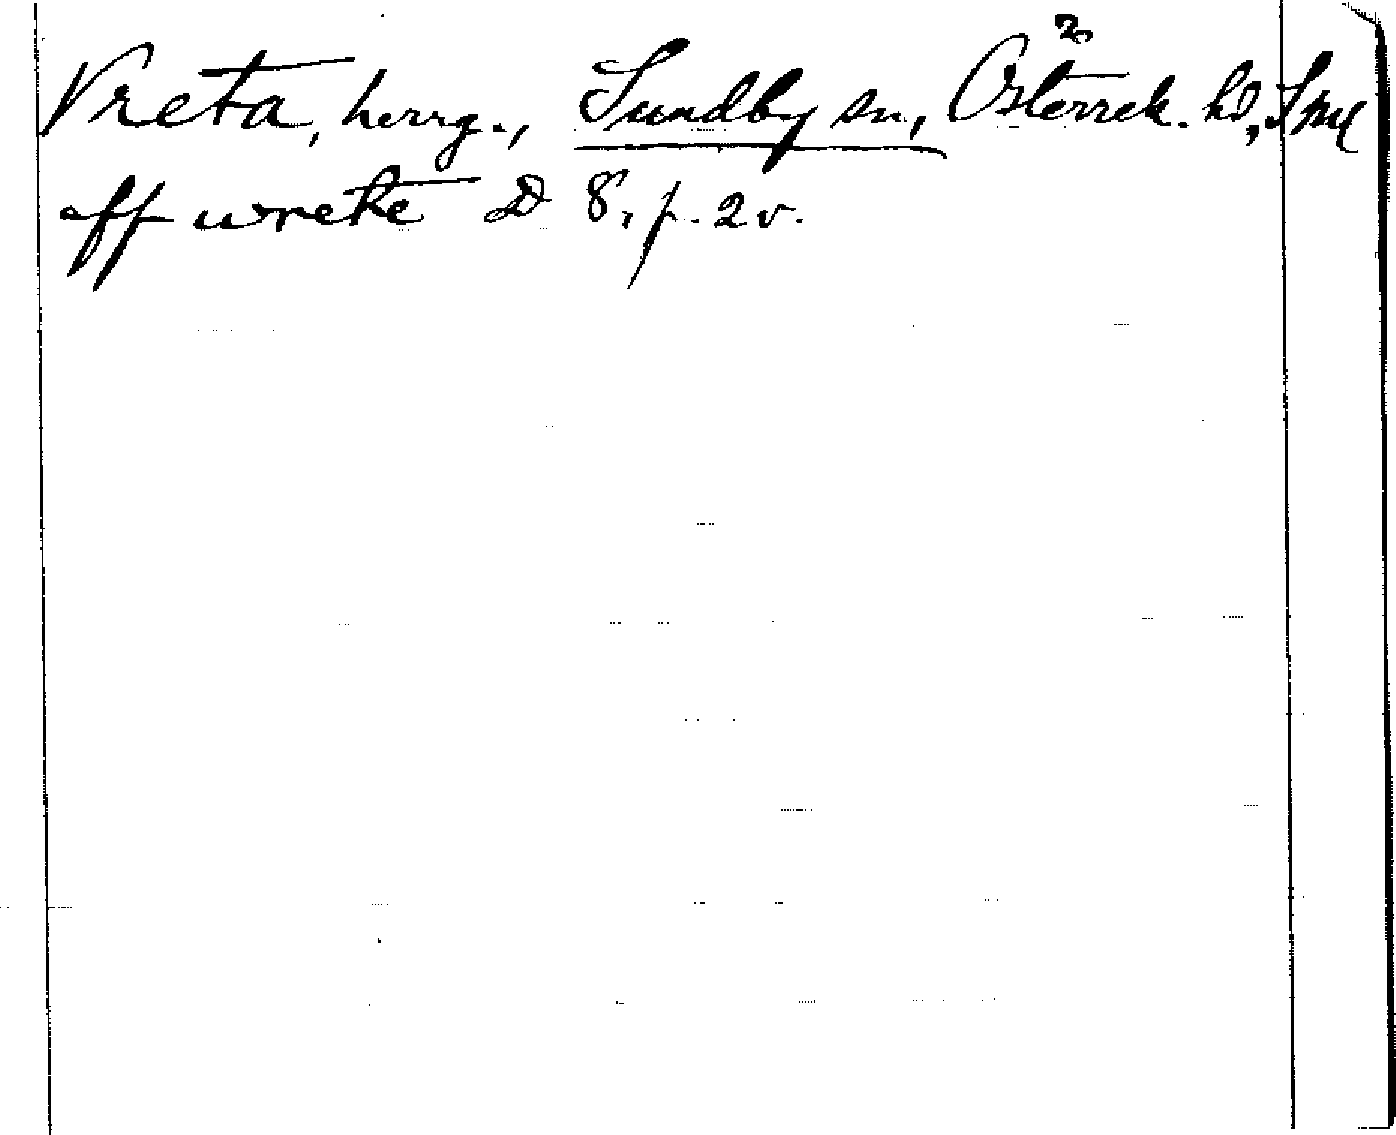 Vreta, herrg., Sundby sn, Österrek. hd, Sml
aff wrete D 8, f. 2v.